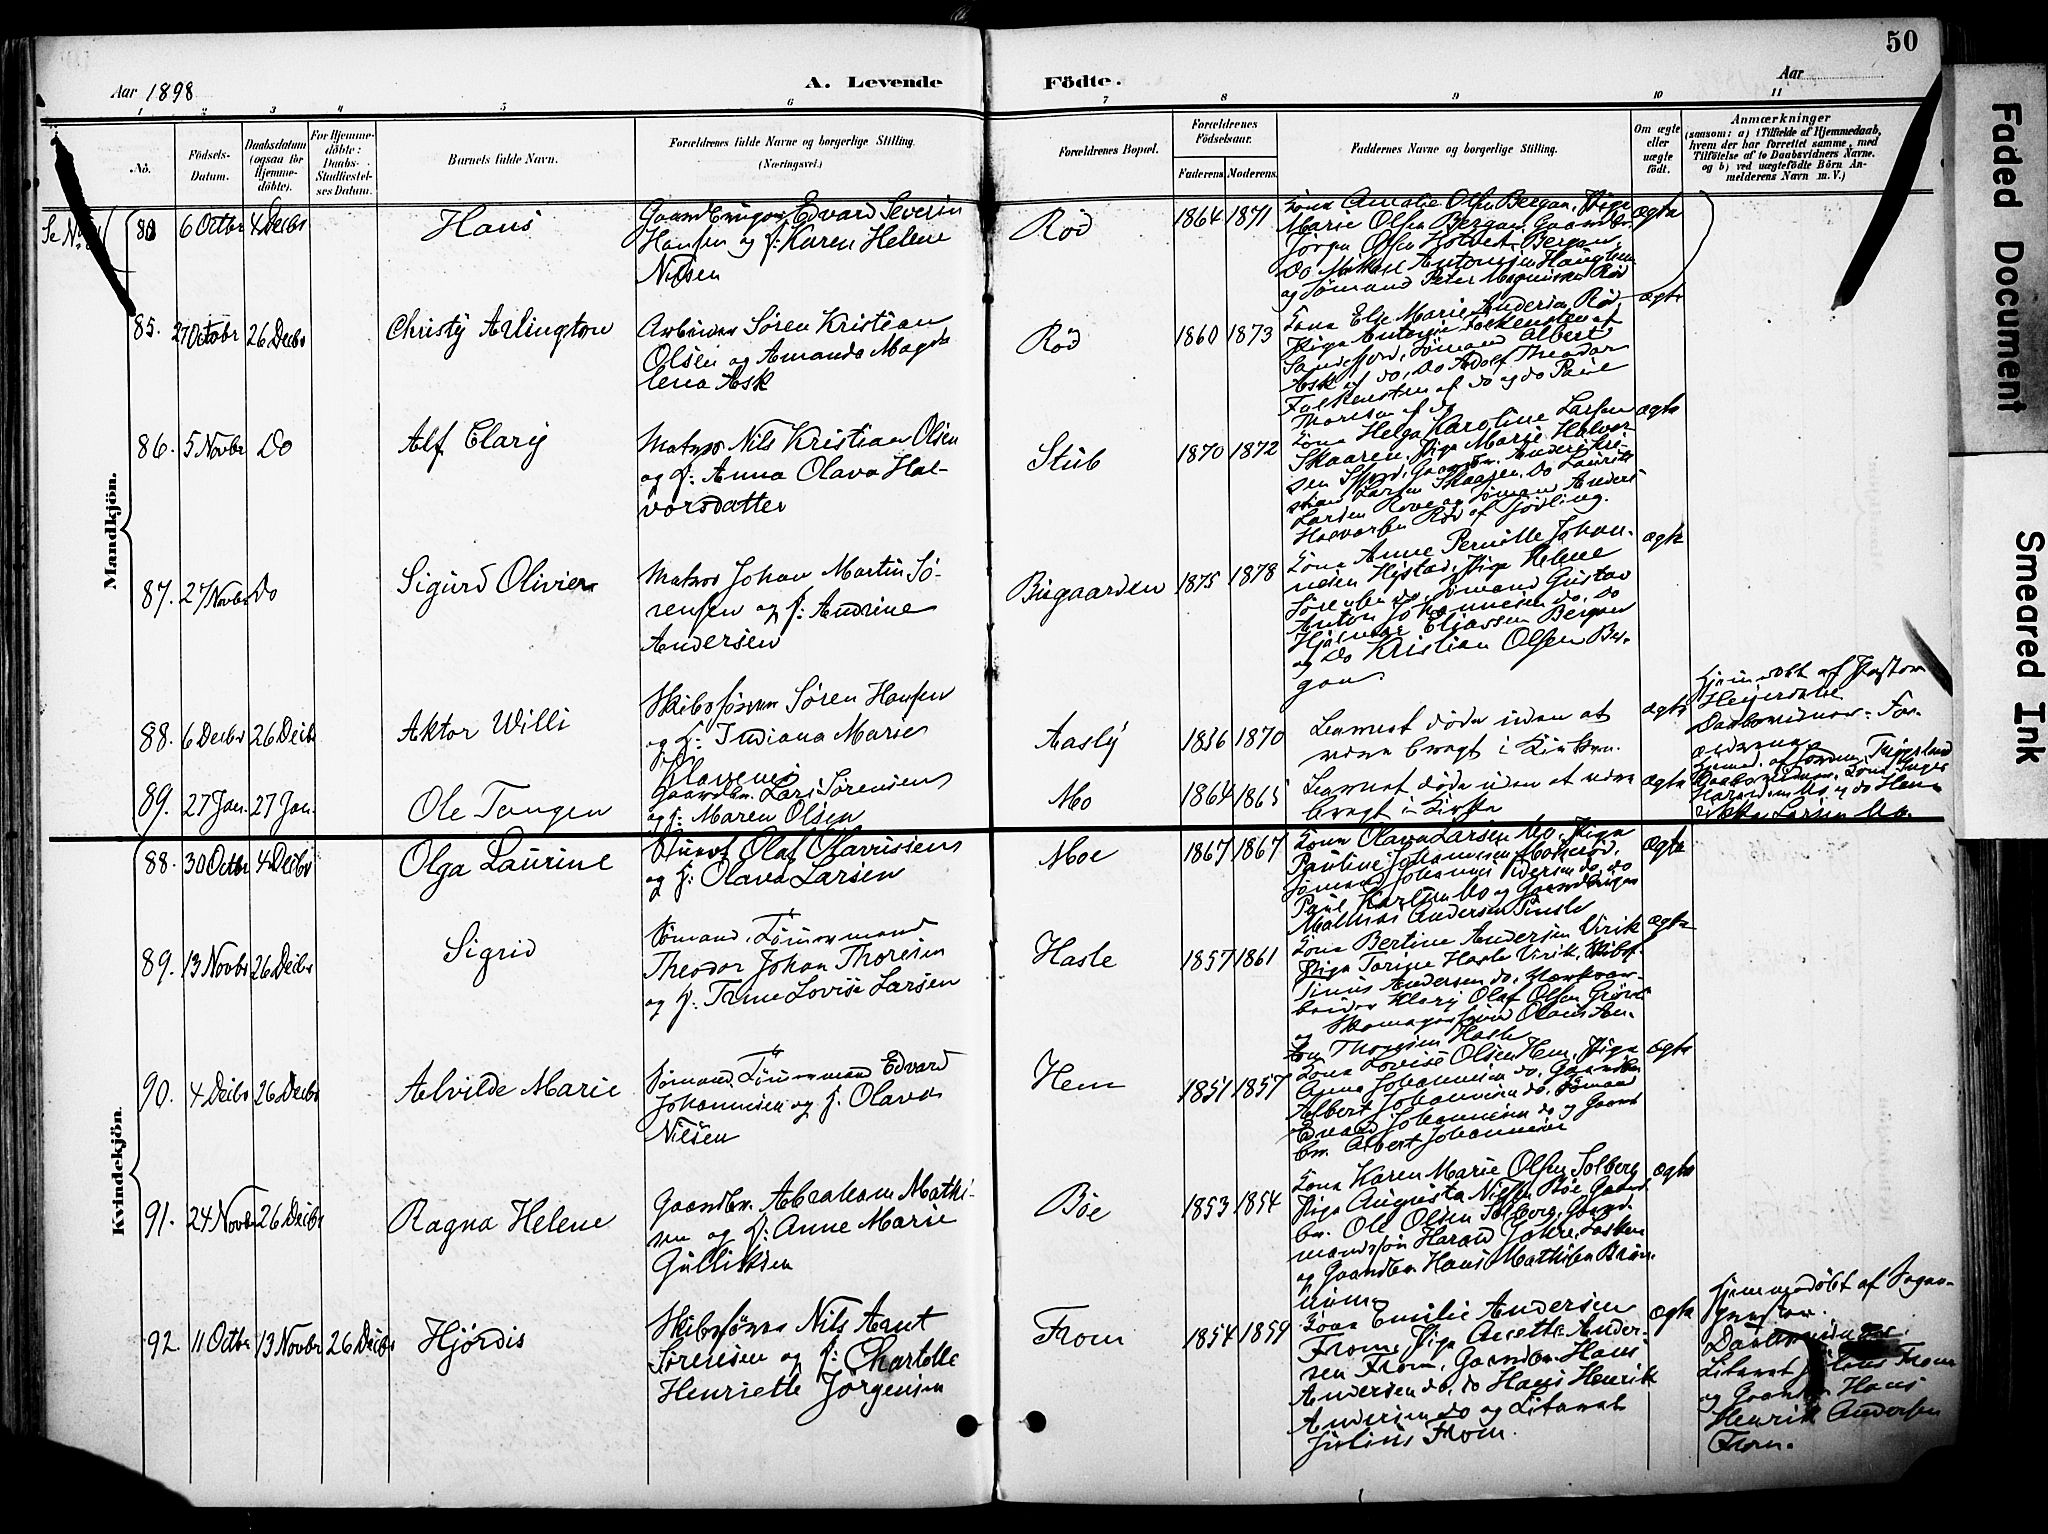 50
Aar 1898
A. Levende
Födte.
Aar
1 2 3 4 5 6 7 8 9 10 11
No.
Födsels-
Datum.
Daabsdatum
(ogsaa for
Hjemme-
döbte).
For Hjemme-
döbte:
Daabs-
Stadfæstel-
ses Datum.
Barnets fulde Navn.
Forældrenes fulde Navne og borgerlige Stilling.
(Næringsvei.)
Forældrenes Bopæl.
Forældrenes
Födselsaar.
Faderens. Moderens.
Faddernes Navne og borgerlige Stilling.
Om ægte
eller
uægte
födt.
Anmærkninger
(saasom: a) i Tilfælde af Hjemmedaab,
hvem der har forrettet samme, med
Tilföielse af to Daabsvidners Navne.
og b) ved uægtefödte Börn An-
melderens Navn m. V.)
Mandkjön.
6 Octbr 4 Decbr
Hans
Gaardbruger Edvard Severin
Hansen og H: Karen Helene
Nilsen
Rød
1864 1871
Kona Amalie Olsen Bergan, Pige
Marie Olsen Bergan, Gaardbr.
Jørgen Olsen Holtvet, Bergan,
Do Mikael Antonsen Haugtem
og Sømand Peter Magnussen Rød
ægte
85. 27 Octobr 26 Decbr
Christy Arlington
Arbeider Søren Kristian
Olsen og Amanda Magda
lena Ask
Rød
1860 1873
Kona Else Marie Andersen Rød,
Pige Antonie Falkensten af
Sandefjord, Sømand Albert
Ask af do, Do Adolf Theodor
Falkensten af do og do Paul
Thoresen af do
ægte
86. 5 Novbr Do
Alf Clary
Matros Nils Kristian Olsen
og H: Anna Olava Hal-
vorsdatter
Stub
1870 1872
Kona Helga Karoline Larsen
Skaaren, Pige Marie Halvor
sen Gaardbr. Anders Kri-
stian Larsen Skaaren, Do Laurits
Larsen Rove og Sømand Anders
Halvorsen Rød af Tjødling.
ægte
87. 27 Novbr Do
Sigurd Olivier
Matros Johan Martin Sø-
rensen og H: Andrine
Andersen
Bugaarden
1875 1878
Kona Anne Pernille Johan-
nesen Hystad, Pige Helene
Sørensen do, Sømand Gustav
Anton Johannesen do, Do
Hjalmar Eliassen Bergan
og Do Kristian Olsen Ber-
gan
ægte
88. 6 Decbr 26 Decbr
Aktor Willi
Skibsfører Søren Hansen
og H: Indiana Marie
Klavenes
Aasly
1836 1870
Barnet døde uden at
være bragt i Kirken.
ægte
Hjemmedøbt af Pastor
Heyerdahl
Daabsvidner: For-
ældrene
89. 27 Jan. 27 Jan.
Ole Tangen
Gaardbr. Lars Sørensen
og H: Maren Olsen
Mo
1864 1865
Barnet døde uden at være
bragt i Kirken
ægte
Hjemmed. af Jordm.
Daabsvidner: Kona Inger
Haraldsen Mo og do Hen-
riette Larsen Mo.
Kvindekjön.
88. 30 Octbr 4 Decbr
Olga Laurine
Stuert Olaf Olavussen
og H: Olava Larsen
Moe
1867 1867
Kona Olava Larsen Mo, Pige
Pauline Johannesen Mokerød,
Sømand Johannes Pedersen do, do
Paul Karlsen Mo og Gaardbruger
Mathias Andersen
ægte
89. 13 Novbr 26 Decbr
Sigrid
Sømand, Tømmermand
Theodor Johan Thoresen
og H: Trine Lovise Larsen
Hasle
1857 1861
Kona Bertine Andersen Virik
Pige Torine Hasle Virik,
Tinus Andersen do, Værksar-
beider Olaf Olsen
og Skomagersvend Olaus An-
ton Thoresen Hasle
ægte
90. 4 Decbr 26 Decbr
Alvilde Marie
Sømand, Tømmermand Edvard
Johannesen og H: Olava
Nilsen
Hem
1851 1857
Kona Lovise Olsen Hem, Pige
Anna Johannesen do, Gaardbr.
Albert Johannesen do, Sømand
Edvard Johannesen do og Gaard
br. Albert Johannesen
ægte
91. 24 Novbr 26 Decbr
Ragna Helene
Gaardbr. Abraham Mathi-
sen og H: Anne Marie
Gulliksen
Bøe
1853 1854
Kona Karen Marie Olsen Solberg
Pige Augusta Nilsen Bøe, Gaard
br. Ole Olsen Solberg, Gaard-
mandssøn Harald
og Gaardbr. Hans Mathisen
ægte
92 11 Octbr 13 Novbr 26 Decbr
Hjørdis
Skibsfører Nils Arnt
Sørensen og H: Chartolle
Henriette Jørgensen
From
1854 1859
Kona Emilie Andersen
From, Pige Anette Ander-
sen From, Gaardbr. Hans
Andersen do, do Hans Henrik
Andersen do og Literat
Julius From.
ægte
Hjemmedøbt af Sogne-
præsten.
Daabsvidner:
Literat Julius From
og Gaardbr. Hans
Henrik Andersen
From.
Faded Document
Smeared Ink